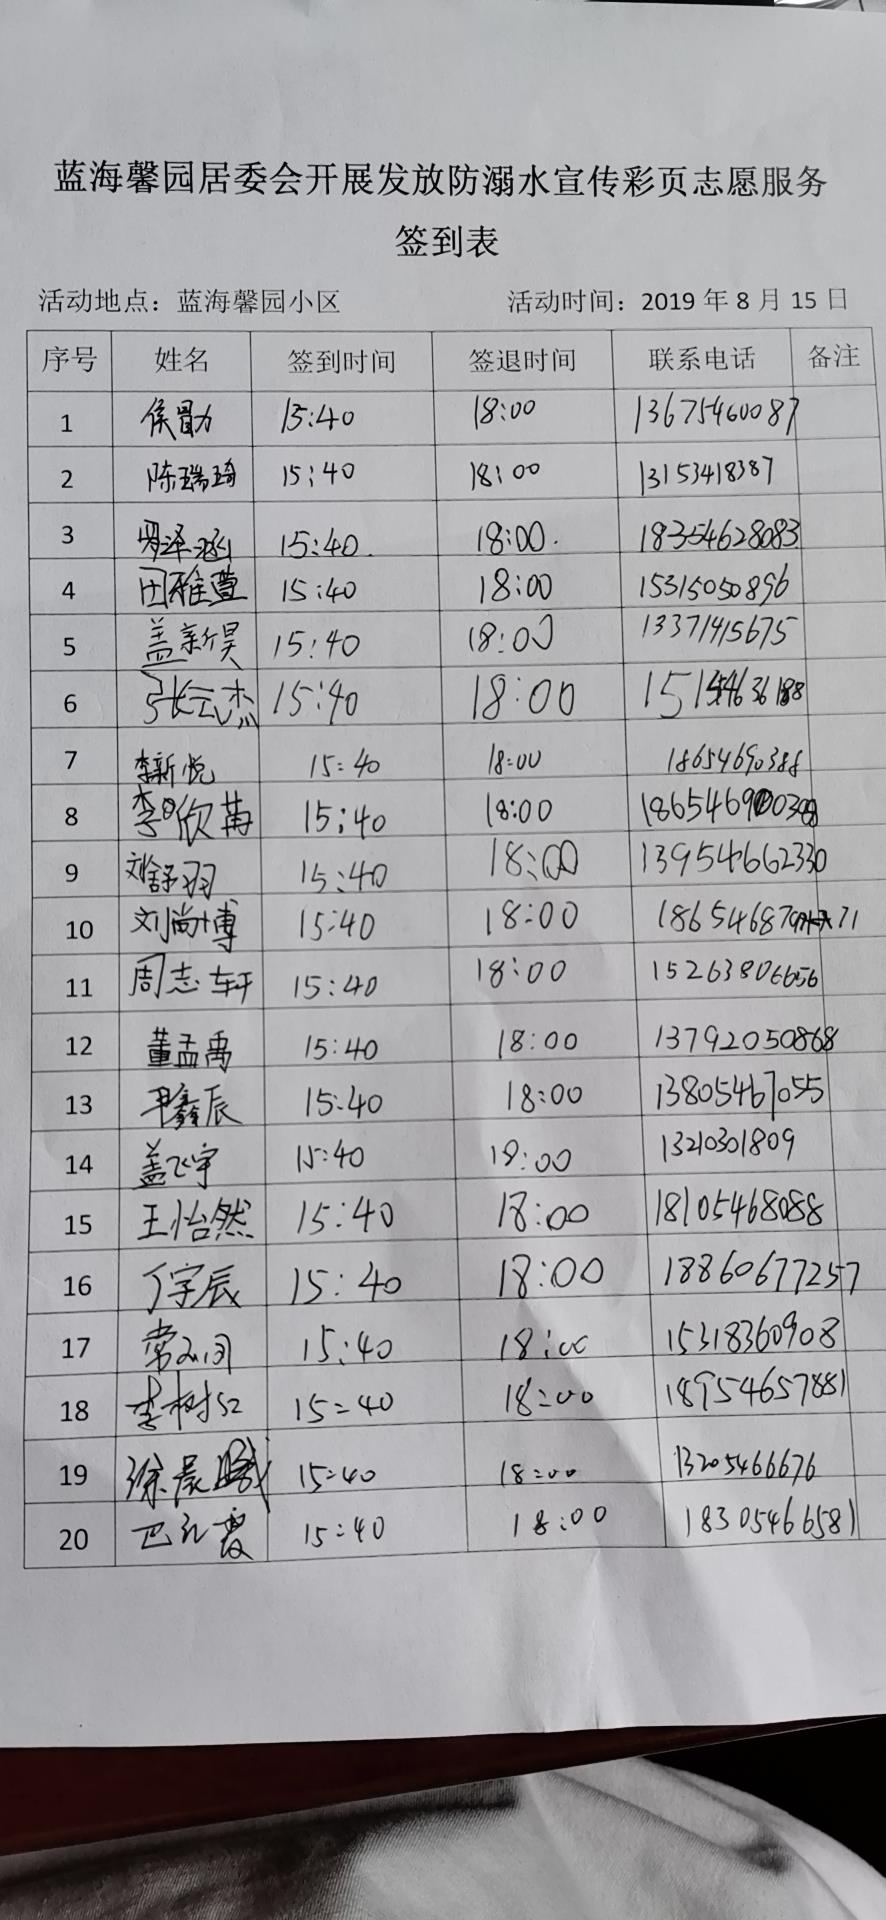 蓝海馨园居委会开展发放防溺水宣传彩页志愿服务
签到表
活动地点：蓝海馨园小区 活动时间：2019 年 8 月 15 日
序号 姓名 签到时间 签退时间 联系电话 备注
1 侯勖力 15:40 18:00 13675460087
2 陈瑞琦 15:40 18:00 13153418387
3 15:40. 18:00. 18354628083
4 田雅萱 15:40 18:00 15315050896
5 盖新昊 15:40 18:00 13371415675
6 张云杰 15:40 18:00
7 李新悦 15:40 18:00 18654690388
8 李欣苒 15:40 18:00
9 刘舒羽 15:40 18:00 13954662330
10 刘尚博 15:40 18:00
11 周志轩 15:40 18:00 15263806656
12 董孟禹 15:40 18:00 13792050868
13 鑫辰 15:40 18:00 13805467055
14 盖飞宇 15:40 18:00 13210301809
15 王怡然 15:40 18:00 18105468088
16 丁宇辰 15:40 18:00 18860677257
17 15:40 18:00 15318360908
18 李树 15:40 18:00 18954657881
19 徐晨 15:40 18:00 13205466676
20 巴 15:40 18:00 18305466581